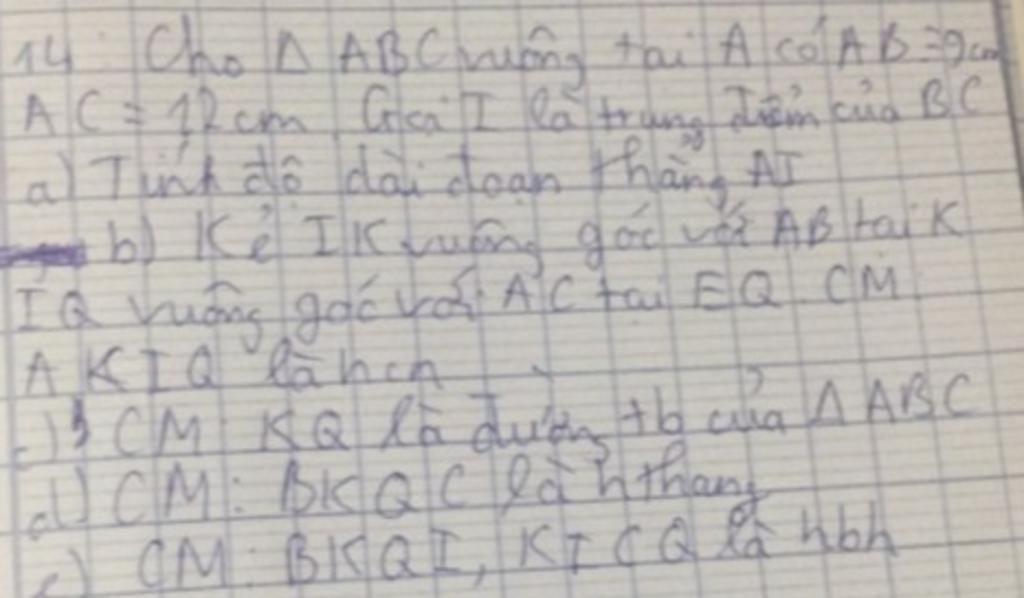 14. Cho Δ ABC vuông tại A có AB = 9cm
AC = 12 cm. Gọi I là trung điểm của BC
a) Tính độ dài đoạn thẳng AI
b) Kẻ IK vuông góc với AB tại K
IQ vuông góc với AC tại EQ CM
AKIQ là hcn
c) CM KQ là đường tb của Δ ABC
d) CM: BKQC là hthang
e) CM: BKQI, KICQ là hbh